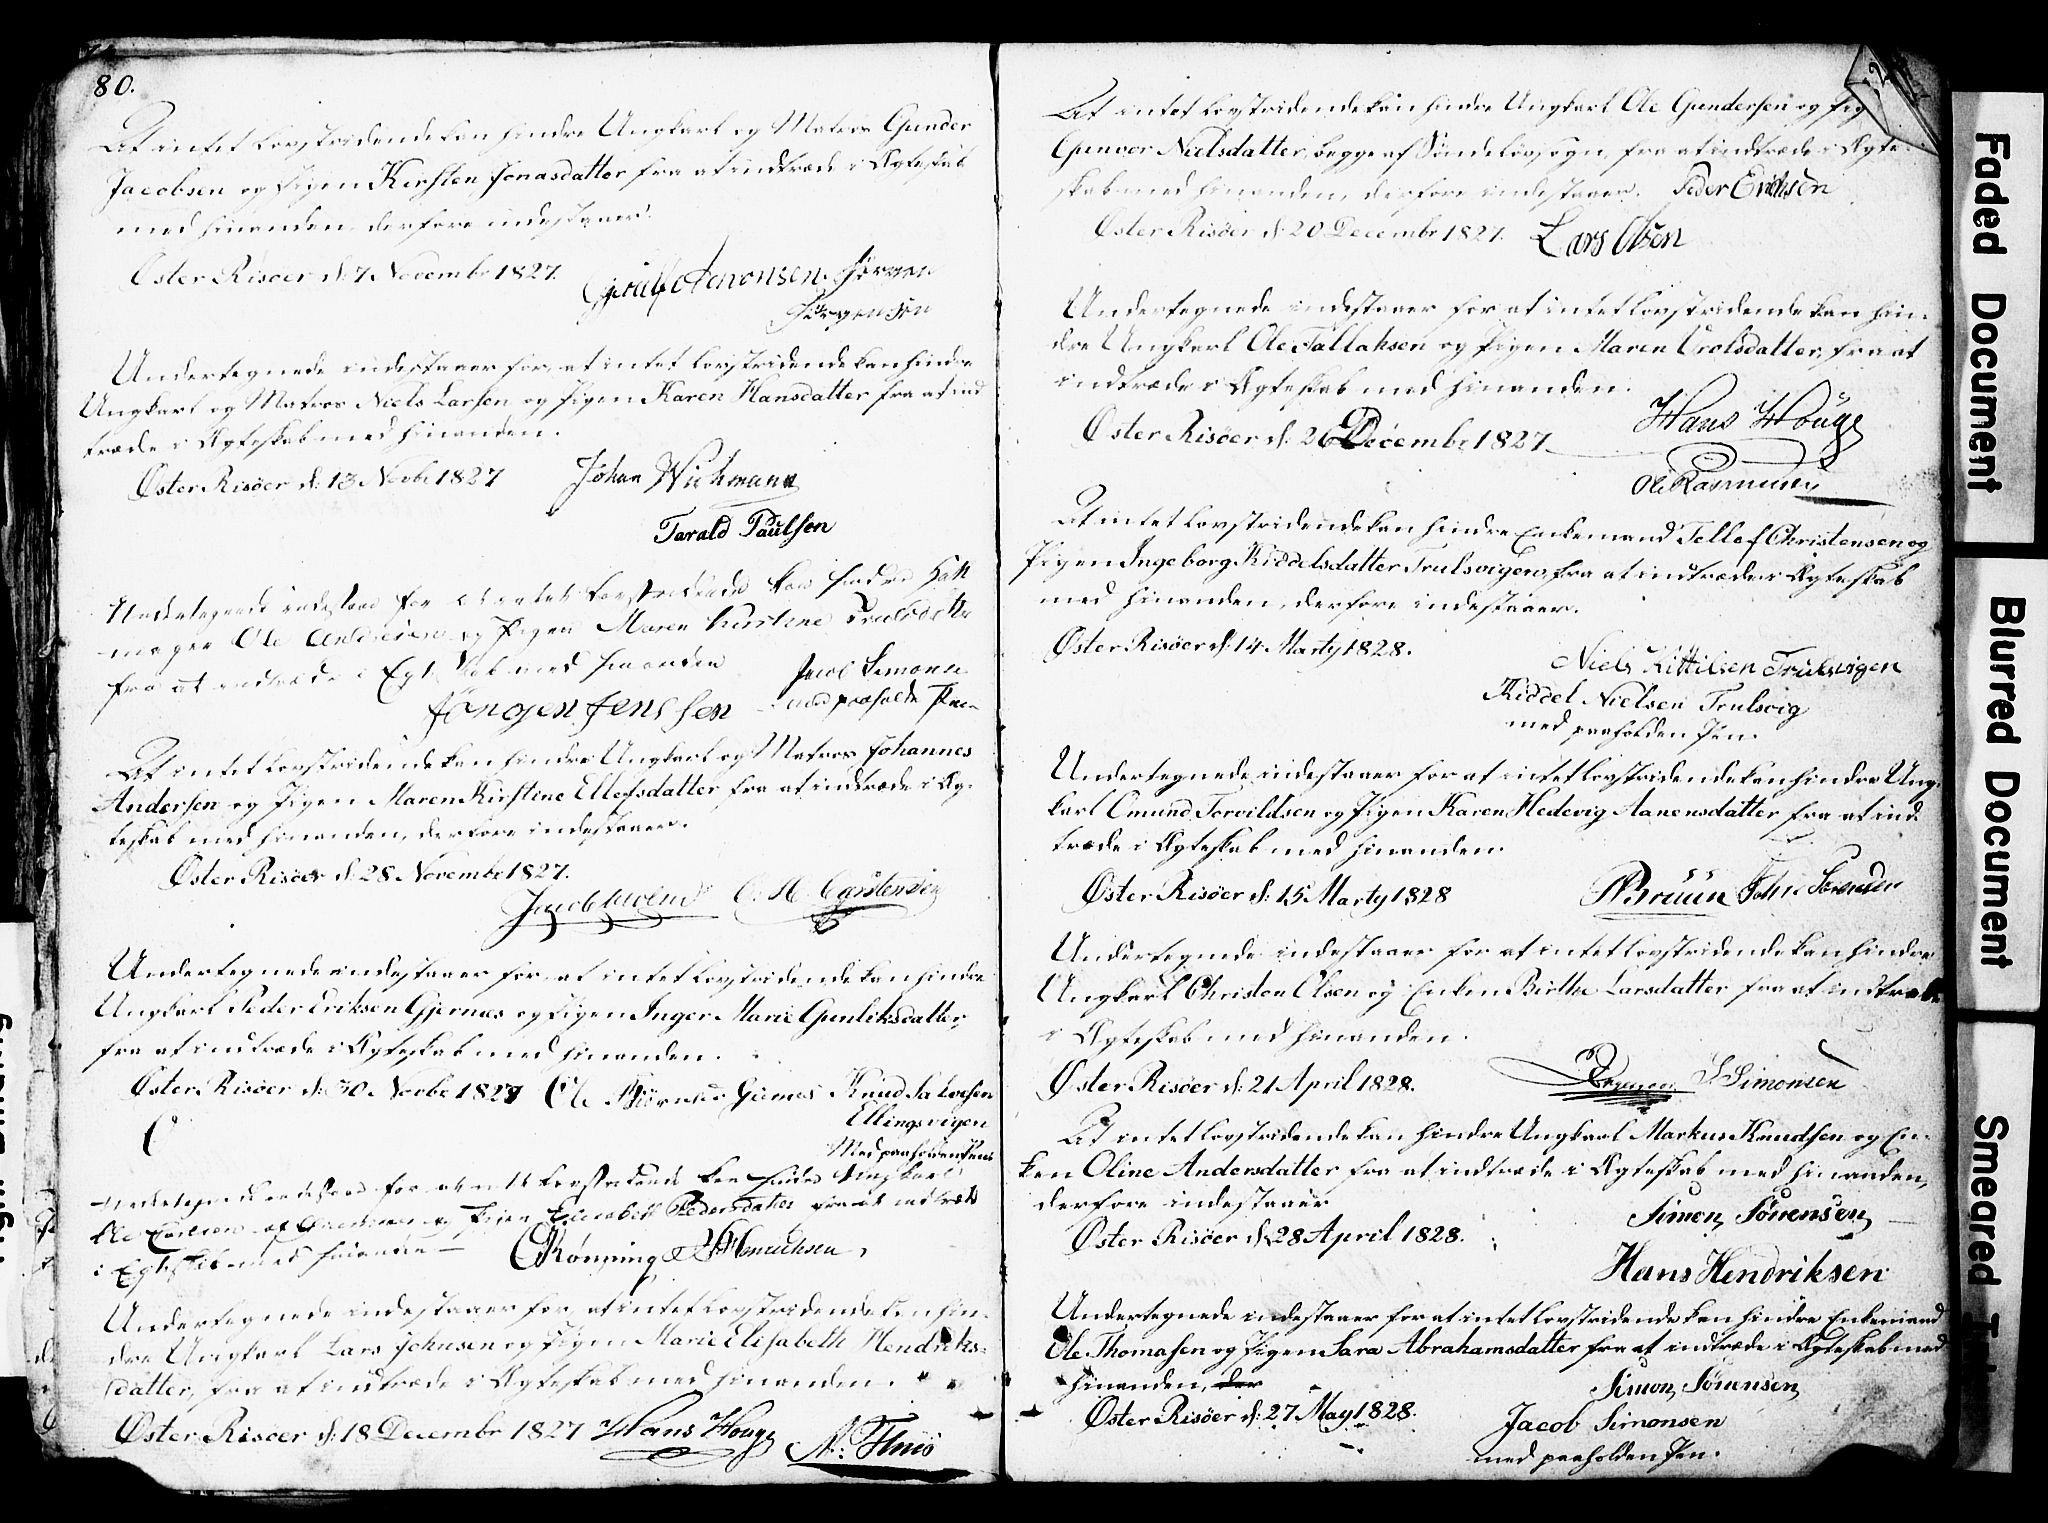 80.
At intet lovstridende kan hindre Ungkarl og Matros Gunder
Jacobsen og Pigen Kirsten Jonasdatter fra at indtræde i Ægteskab
med hinanden derfore indestaaer.
Øster Risøer d: 7 Novembr 1827. Jørgen
Jørgensen
Undertegnede indestaaer for, at intet lovstridende kan hindre
Ungkarl og Matros Niels Larsen og Pigen Karen Hansdatter fra at ind
træde i Ægteskab med hinanden.
Øster Risøer d: 13 Novbr 1827 Johan Wichmann
Tarald Paulsen
Undertegnede indestaae for at intet lovstridende kan hindre Hatt
mager Ole Andersen og Pigen Maren Kirstine
fra at indtræde i Egteskab med hinanden Jacob Simonsen
Jørgen Jenssen med paaholdt Pen
At intet lovstridende kan hindre Ungkarl og Matros Johannes
Andersen og Pigen Maren Kirstine Ellefsdatter fra at indtræde i Æg-
teskab med hinanden, derfore indestaaer.
Øster Risøer d: 28 Novembr 1827.
Jacob Juvend C. H. Carstensen
Undertegnede indestaaer for, at intet lovstridende kan hindre
Ungkarl Peder Eriksen Gjernæs og Pigen Inger Marie Gunliksdatter,
fra at indtræde i Ægteskab med hinanden.
Øster Risøer d: 30 Novbr 1827 Ole Giernes Knud Jakobsen
Ellingsvigen
Med paaholden Pen
Undertegnede indestaae for at intet lovstridende kan hindre Ungkarl
Ole og Pigen Elisabeth Pedersdatter fra at indtræde
i Egteskab med hinanden — Rønning Hinrichsen
Undertegnede indestaaer for, at intet lovstridende kan hin-
dre Ungkarl Lars Johnsen og Pigen Marie Elisabeth Hendriks-
datter, fra at indtræde i Ægteskab med hinanden.
Øster Risøer d: 18 Decembr 1827 Hans Houge
At intet lovstridende kan hindre Ungkarl Ole Gundersen og Pig
Gunvor Nielsdatter, begge af Søndeløv sogn, fra at indtræde i Ægte-
skab med hinanden, derfore indestaaer. Peder Erichsen
Øster Risøer d: 20 Decembr 1827. Lars Olsen
Undertegnede indestaaer for at intet lovstridende kan hin-
dre Ungkarl Ole Tallaksen og Pigen Maren Orolsdatter, fra at
indtræde i Ægteskab med hinanden.
Øster Risøer d: 26 Decembr 1827 Hans Houge
Ole Rasmusen
At intet lovstridende kan hindre Enkemand Tellef Christensen og
Pigen Ingeborg Kiddelsdatter Trulsvigen, fra at indtræde i Ægteskab
med hinanden, derfore indestaaer.
Øster Risøer d: 14 Marty 1828.
Niels Kittilsen Trulsvigen
Kiddel Nielsen Trulsvig
med paaholden Pen.
Undertegnede indestaaer for at intet lovstridende kan hindre Ung-
karl Omund Torvildsen og Pigen Karen Hedevig Aanensdatter fra at ind
træde i Ægteskab med hinanden.
Øster Risøer d: 15 Marty 1828 Bruun
Undertegnede indestaaer for at intet lovstridende kan hindre
Ungkarl Christen Olsen og Enken Birthe Larsdatter fra at indtræde
i Ægteskab med hinanden.
Øster Risøer d: 21 April 1828. S Simonsen
At intet lovstridende kan hindre Ungkarl Markus Knudsen og En-
ken Oline Andersdatter fra at indtræde i Ægteskab med hinanden,
derfore indestaaer
Simon Sörensen
Øster Risøer d: 28 April 1828.
Hans Hendriksen
Undertegnede indestaaer for at intet lovstridende kan hindre Enkemand
Ole Thomasen og Pigen Sara Abrahamsdatter fra at indtræde i Ægteskab med
hinanden, der
Simon Sörensen
Øster Risøer d: 27 May 1828. Jacob Simonsen
med paaholden Pen.
Faded Document
Blurred Document
Smeared